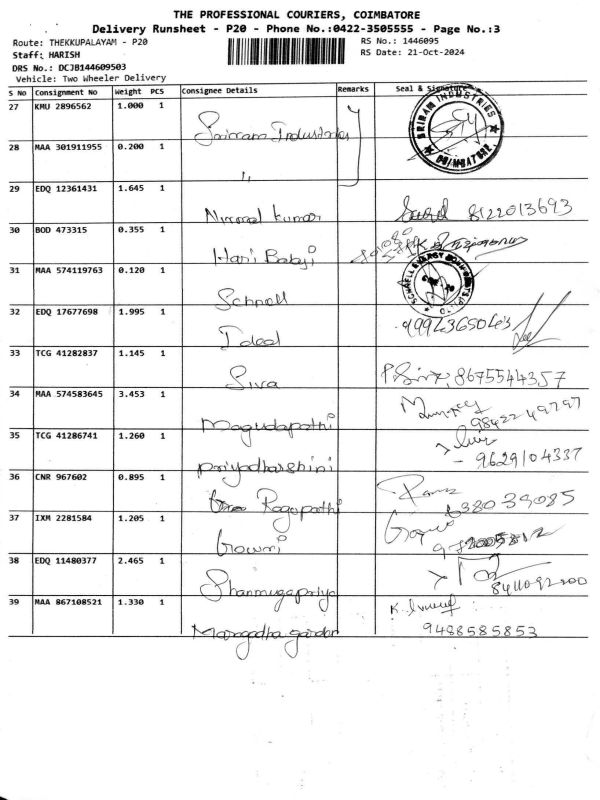 THE PROFESSIONAL COURIERS, COIMBATORE
Delivery Runsheet - P20 - Phone No.:0422-3505555 - Page No.:3
Route: THEKKUPALAYAM - P20
RS No.: 1446095
Staff: HARISH
RS Date: 21-Oct-2024
DRS No.: DCJB144609503
Vehicle: Two Wheeler Delivery
S No Consignment No Weight PCS Consignee Details Remarks Seal & Signature
27 KMU 2896562 1.000 1
Sriram Industries
SRIRAM INDUSTRIES
COIMBATORE
28 MAA 301911955 0.200 1
"
29 EDQ 12361431 1.645 1
Nirmal kumar 8122013693
30 BOD 473315 0.355 1
Hari Babji
31 MAA 574119763 0.120 1
Schnell
32 EDQ 17677698 1.995 1
Ideal 9994365043
33 TCG 41282837 1.145 1
Siva 8675544357
34 MAA 574583645 3.453 1
Magudapathi 9842249797
35 TCG 41286741 1.260 1
Priyadharshini - 9629104337
36 CNR 967602 0.895 1
Ragupathi
37 IXM 2281584 1.205 1
Gowri
38 EDQ 11480377 2.465 1
Shanmugapriya
39 MAA 867108521 1.330 1
9488585853